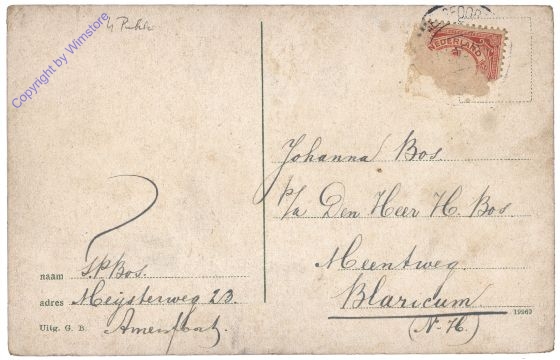 Copyright by Wimstore
NEDERLAND
Johanna Bos
p/a Den Heer H. Bos
Meentweg
Blaricum
(N-H.)
naam S.P. Bos.
adres Meysterweg 23.
Uitg. G. B. Amersfoort.
19969